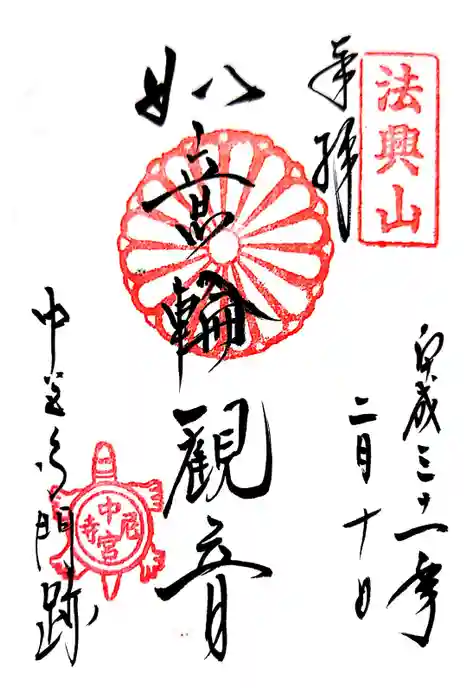 法興山
奉拝
平成三十一年
二月十日
如意輪観音
中宮寺門跡
中宮尼寺